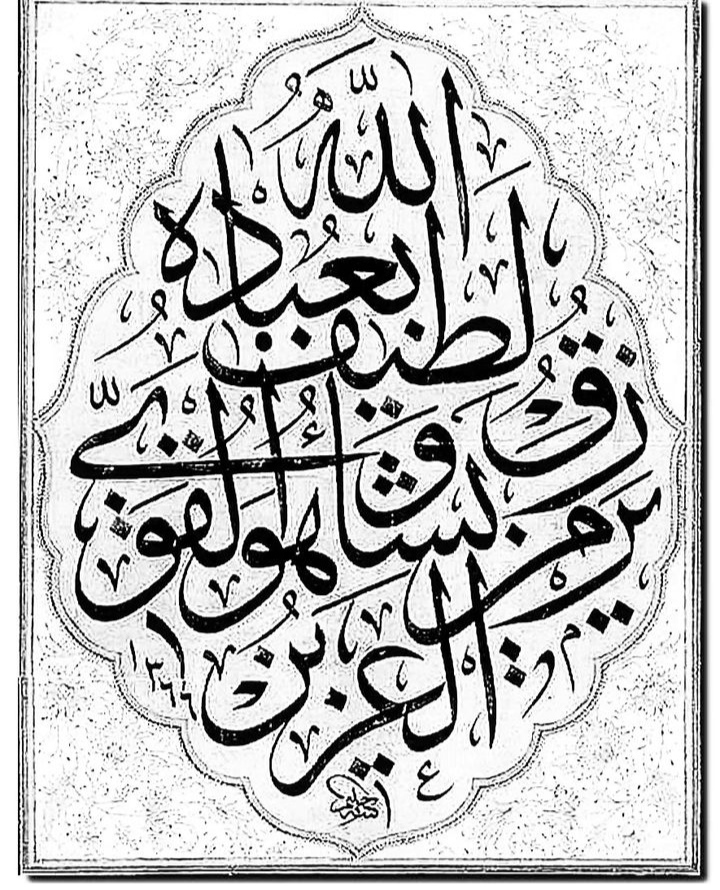 الله
لطيف بعباده
يرزق من يشاء
وهو القوي
العزيز
١٣٦٦